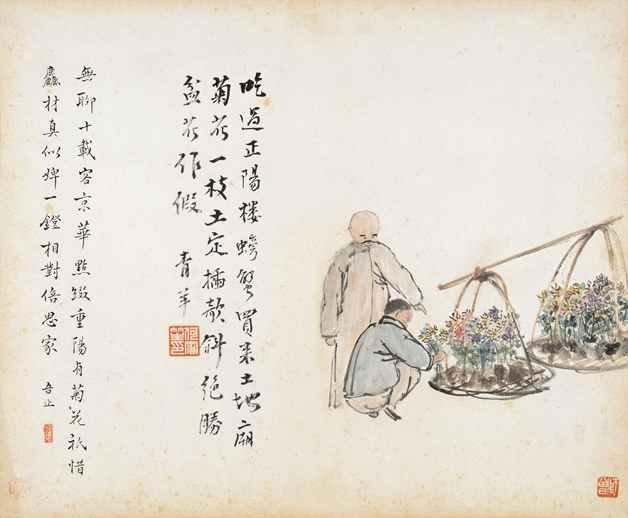 吃過正陽樓螃蟹買來土地廟
菊花一枝土定插欹斜絕勝
盆花作假 青羊
無聊十載客京華點綴重陽有菊花祇惜
麤材真似婢一鐙相對倍思家 吾止
師曾